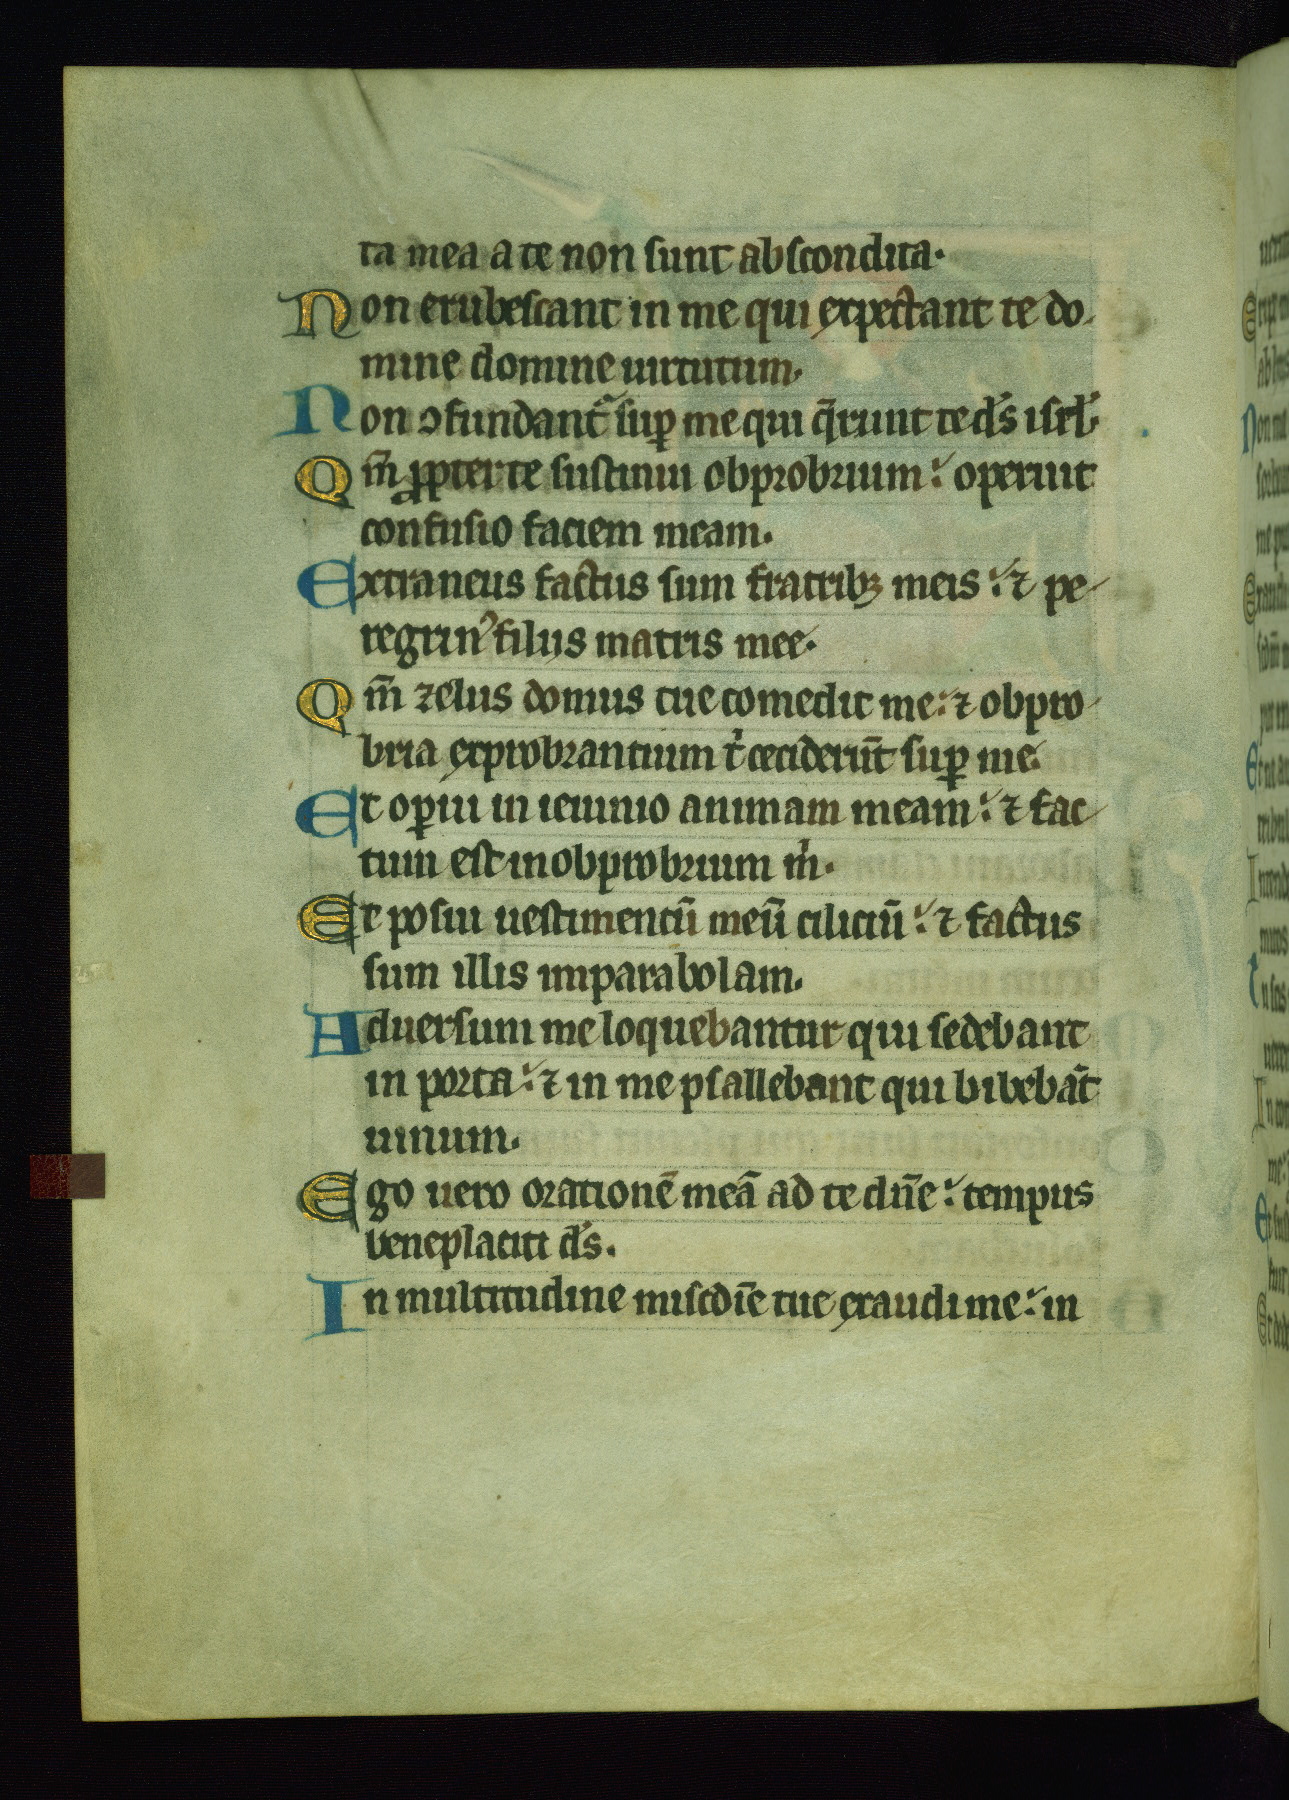 ta mea a te non sunt abscondita.
Non erubescant in me qui expectant te do
mine domine uirtutum.
Non ↄfundant᷑ sup̱ me qui q̄runt te d̄s isrl̄.
Qm̄ ꝓpter te sustinui obprobrium: operuit
confusio faciem meam.
Extraneus factus sum fratribꝫ meis: ⁊ pe
regrin⁹ filijs matris mee.
Qm̄ zelus domus tue comedit me: ⁊ obpro
bria exprobrantium t̓ ceciderūt suꝑ me.
Et oꝑui in ieiunio animam meam: ⁊ fac
tum est in obprobrium m̓.
Et posui uestimentū meū ciliciū: ⁊ factus
sum illis in parabolam.
Aduersum me loquebantur qui sedebant
in porta: ⁊ in me psallebant qui bibebāt
uinum.
Ego uero orationē meā ad te dn̄e: tempus
beneplaciti d̄s.
In multitudine miscdīe tue exaudi me: in